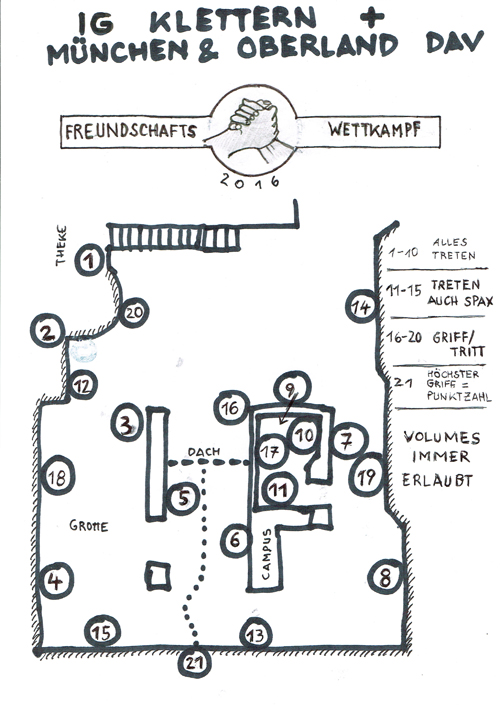 IG KLETTERN +
MÜNCHEN & OBERLAND DAV
FREUNDSCHAFTS WETTKAMPF
2016
THEKE
1
20
2
12
3
18
GROTTE
4
15
DACH
5
21
16
9
10
7
17
11
6
CAMPUS
13
14
19
8
1-10 ALLES
TRETEN
11-15 TRETEN
AUCH SPAX
16-20 GRIFF/
TRITT
21 HÖCHSTER
GRIFF =
PUNKTZAHL
VOLUMES
IMMER
ERLAUBT